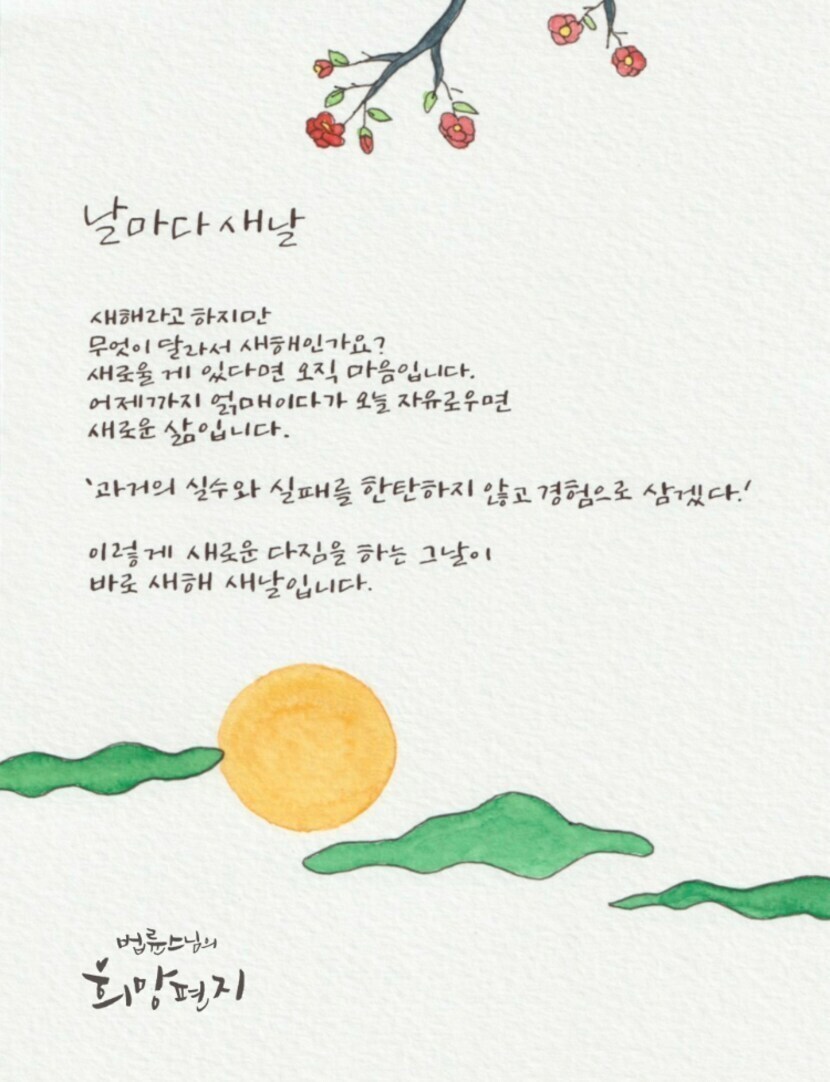 날마다 새날
새해라고 하지만
무엇이 달라서 새해인가요?
새로울 게 있다면 오직 마음입니다.
어제까지 얽매이다가 오늘 자유로우면
새로운 삶입니다.
'과거의 실수와 실패를 한탄하지 않고 경험으로 삼겠다.'
이렇게 새로운 다짐을 하는 그날이
바로 새해 새날입니다.
법륜스님의
희망편지